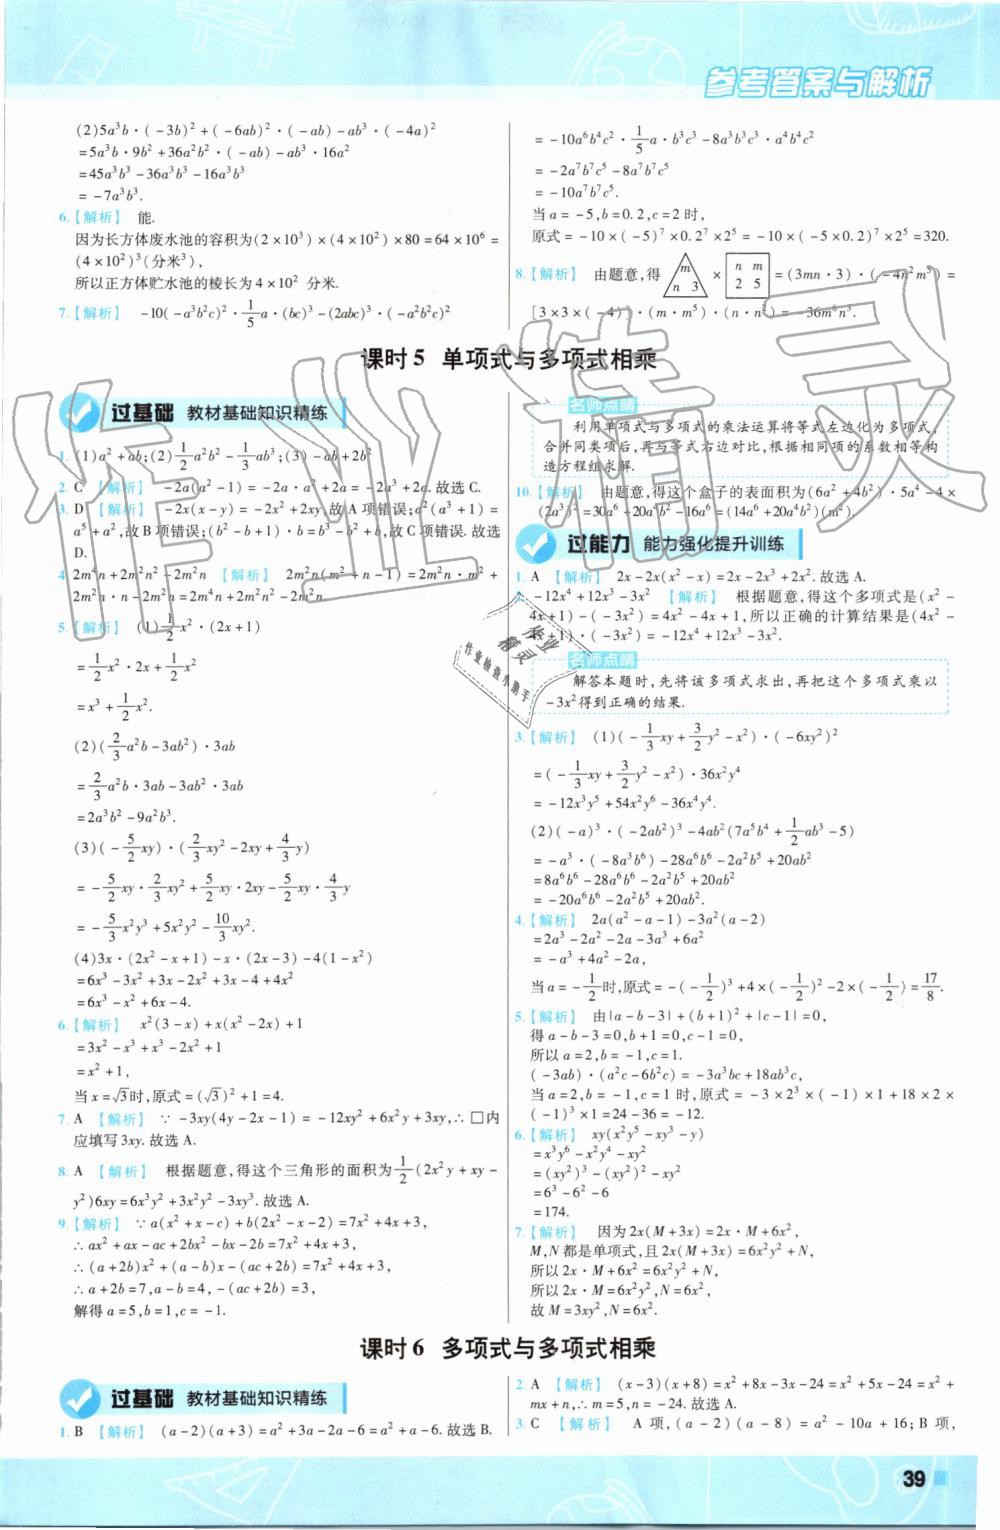 参考答案与解析
(2)5a³b·(-3b)²+(-6ab)²·(-ab)-ab³·(-4a)²
=5a³b·9b²+36a²b²·(-ab)-ab³·16a²
=45a³b³-36a³b³-16a³b³
=-7a³b³.
6.【解析】 能.
因为长方体废水池的容积为(2×10³)×(4×10²)×80=64×10⁶=
(4×10²)³(分米³),
所以正方体贮水池的棱长为4×10² 分米.
7.【解析】 -10(-a³b²c)²·1/5a·(bc)³-(2abc)³·(-a²b²c)²
=-10a⁶b⁴c²·1/5a·b³c³-8a³b³c³·a⁴b⁴c²
=-2a⁷b⁷c⁵-8a⁷b⁷c⁵
=-10a⁷b⁷c⁵.
当a=-5,b=0.2,c=2时,
原式=-10×(-5)⁷×0.2⁷×2⁵=-10×(-5×0.2)⁷×2⁵=320.
8.【解析】 由题意,得 m n 3 × n m 2 5 =(3mn·3)·(-4n²m⁵)=
[3×3×(-4)]·(m·m⁵)·(n·n²)=-36m⁶n³.
课时5 单项式与多项式相乘
过基础 教材基础知识精练
1.(1)a²+ab;(2)1/2a²b²-1/3ab³;(3)-ab+2b²
2. C 【解析】 -2a(a²-1)=-2a·a²+2a=-2a³+2a.故选C.
3. D 【解析】 -2x(x-y)=-2x²+2xy,故A项错误;a²(a³+1)=
a⁵+a²,故B项错误;(b²-b+1)·b=b³-b²+b,故C项错误.故选
D.
4. 2m⁴n+2m²n²-2m²n 【解析】 2m²n(m²+n-1)=2m²n·m²+
2m²n·n-2m²n=2m⁴n+2m²n²-2m²n.
5.【解析】 (1)1/2x²·(2x+1)
=1/2x²·2x+1/2x²
=x³+1/2x².
(2)(2/3a²b-3ab²)·3ab
=2/3a²b·3ab-3ab²·3ab
=2a³b²-9a²b³.
(3)(-5/2xy)·(2/3xy²-2xy+4/3y)
=-5/2xy·2/3xy²+5/2xy·2xy-5/2xy·4/3y
=-5/3x²y³+5x²y²-10/3xy².
(4)3x·(2x²-x+1)-x·(2x-3)-4(1-x²)
=6x³-3x²+3x-2x²+3x-4+4x²
=6x³-x²+6x-4.
6.【解析】 x²(3-x)+x(x²-2x)+1
=3x²-x³+x³-2x²+1
=x²+1,
当x=√3时,原式=(√3)²+1=4.
7. A 【解析】 ∵-3xy(4y-2x-1)=-12xy²+6x²y+3xy,∴□内
应填写3xy.故选A.
8. A 【解析】 根据题意,得这个三角形的面积为1/2(2x²y+xy-
y²)6xy=6x³y²+3x²y²-3xy³.故选A.
9.【解析】 ∵a(x²+x-c)+b(2x²-x-2)=7x²+4x+3,
∴ax²+ax-ac+2bx²-bx-2b=7x²+4x+3,
∴(a+2b)x²+(a-b)x-(ac+2b)=7x²+4x+3,
∴a+2b=7,a-b=4,-(ac+2b)=3,
解得a=5,b=1,c=-1.
名师点睛
利用单项式与多项式的乘法运算将等式左边化为多项式,
合并同类项后,再与等式右边对比,根据相同项的系数相等构
造方程组求解.
10.【解析】 由题意,得这个盒子的表面积为(6a²+4b²)·5a⁴-4×
(2a³)²=30a⁶+20a⁴b²-16a⁶=(14a⁶+20a⁴b²)(m²).
过能力 能力强化提升训练
1. A 【解析】 2x-2x(x²-x)=2x-2x³+2x².故选A.
2. -12x⁴+12x³-3x² 【解析】 根据题意,得这个多项式是(x²-
4x+1)-(-3x²)=4x²-4x+1,所以正确的计算结果是(4x²-
4x+1)·(-3x²)=-12x⁴+12x³-3x².
名师点睛
解答本题时,先将该多项式求出,再把这个多项式乘以
-3x²得到正确的结果.
3.【解析】 (1)(-1/3xy+3/2y²-x²)·(-6xy²)²
=(-1/3xy+3/2y²-x²)·36x²y⁴
=-12x³y⁵+54x²y⁶-36x⁴y⁴.
(2)(-a)³·(-2ab²)³-4ab²(7a⁵b⁴+1/2ab³-5)
=-a³·(-8a³b⁶)-28a⁶b⁶-2a²b⁵+20ab²
=8a⁶b⁶-28a⁶b⁶-2a²b⁵+20ab²
=-20a⁶b⁶-2a²b⁵+20ab².
4.【解析】 2a(a²-a-1)-3a²(a-2)
=2a³-2a²-2a-3a³+6a²
=-a³+4a²-2a,
当a=-1/2时,原式=-(-1/2)³+4×(-1/2)²-2×(-1/2)=17/8.
5.【解析】 由|a-b-3|+(b+1)²+|c-1|=0,
得a-b-3=0,b+1=0,c-1=0,
所以a=2,b=-1,c=1.
(-3ab)·(a²c-6b²c)=-3a³bc+18ab³c,
当a=2,b=-1,c=1时,原式=-3×2³×(-1)×1+18×2×
(-1)³×1=24-36=-12.
6.【解析】 xy(x²y⁵-xy³-y)
=x³y⁶-x²y⁴-xy²
=(xy²)³-(xy²)²-xy²
=6³-6²-6
=174.
7.【解析】 因为2x(M+3x)=2x·M+6x²,
M,N都是单项式,且2x(M+3x)=6x²y²+N,
所以2x·M+6x²=6x²y²+N,
所以2x·M=6x²y²,N=6x²,
故M=3xy²,N=6x².
课时6 多项式与多项式相乘
过基础 教材基础知识精练
1. B 【解析】 (a-2)(a+3)=a²+3a-2a-6=a²+a-6.故选B.
2. A 【解析】 (x-3)(x+8)=x²+8x-3x-24=x²+5x-24=x²+
mx+n,∴m=5,n=-24.故选A.
3. C 【解析】 A项,(a-2)(a-8)=a²-10a+16;B项,
39
作业精灵
作业
精灵
作业检查小助手